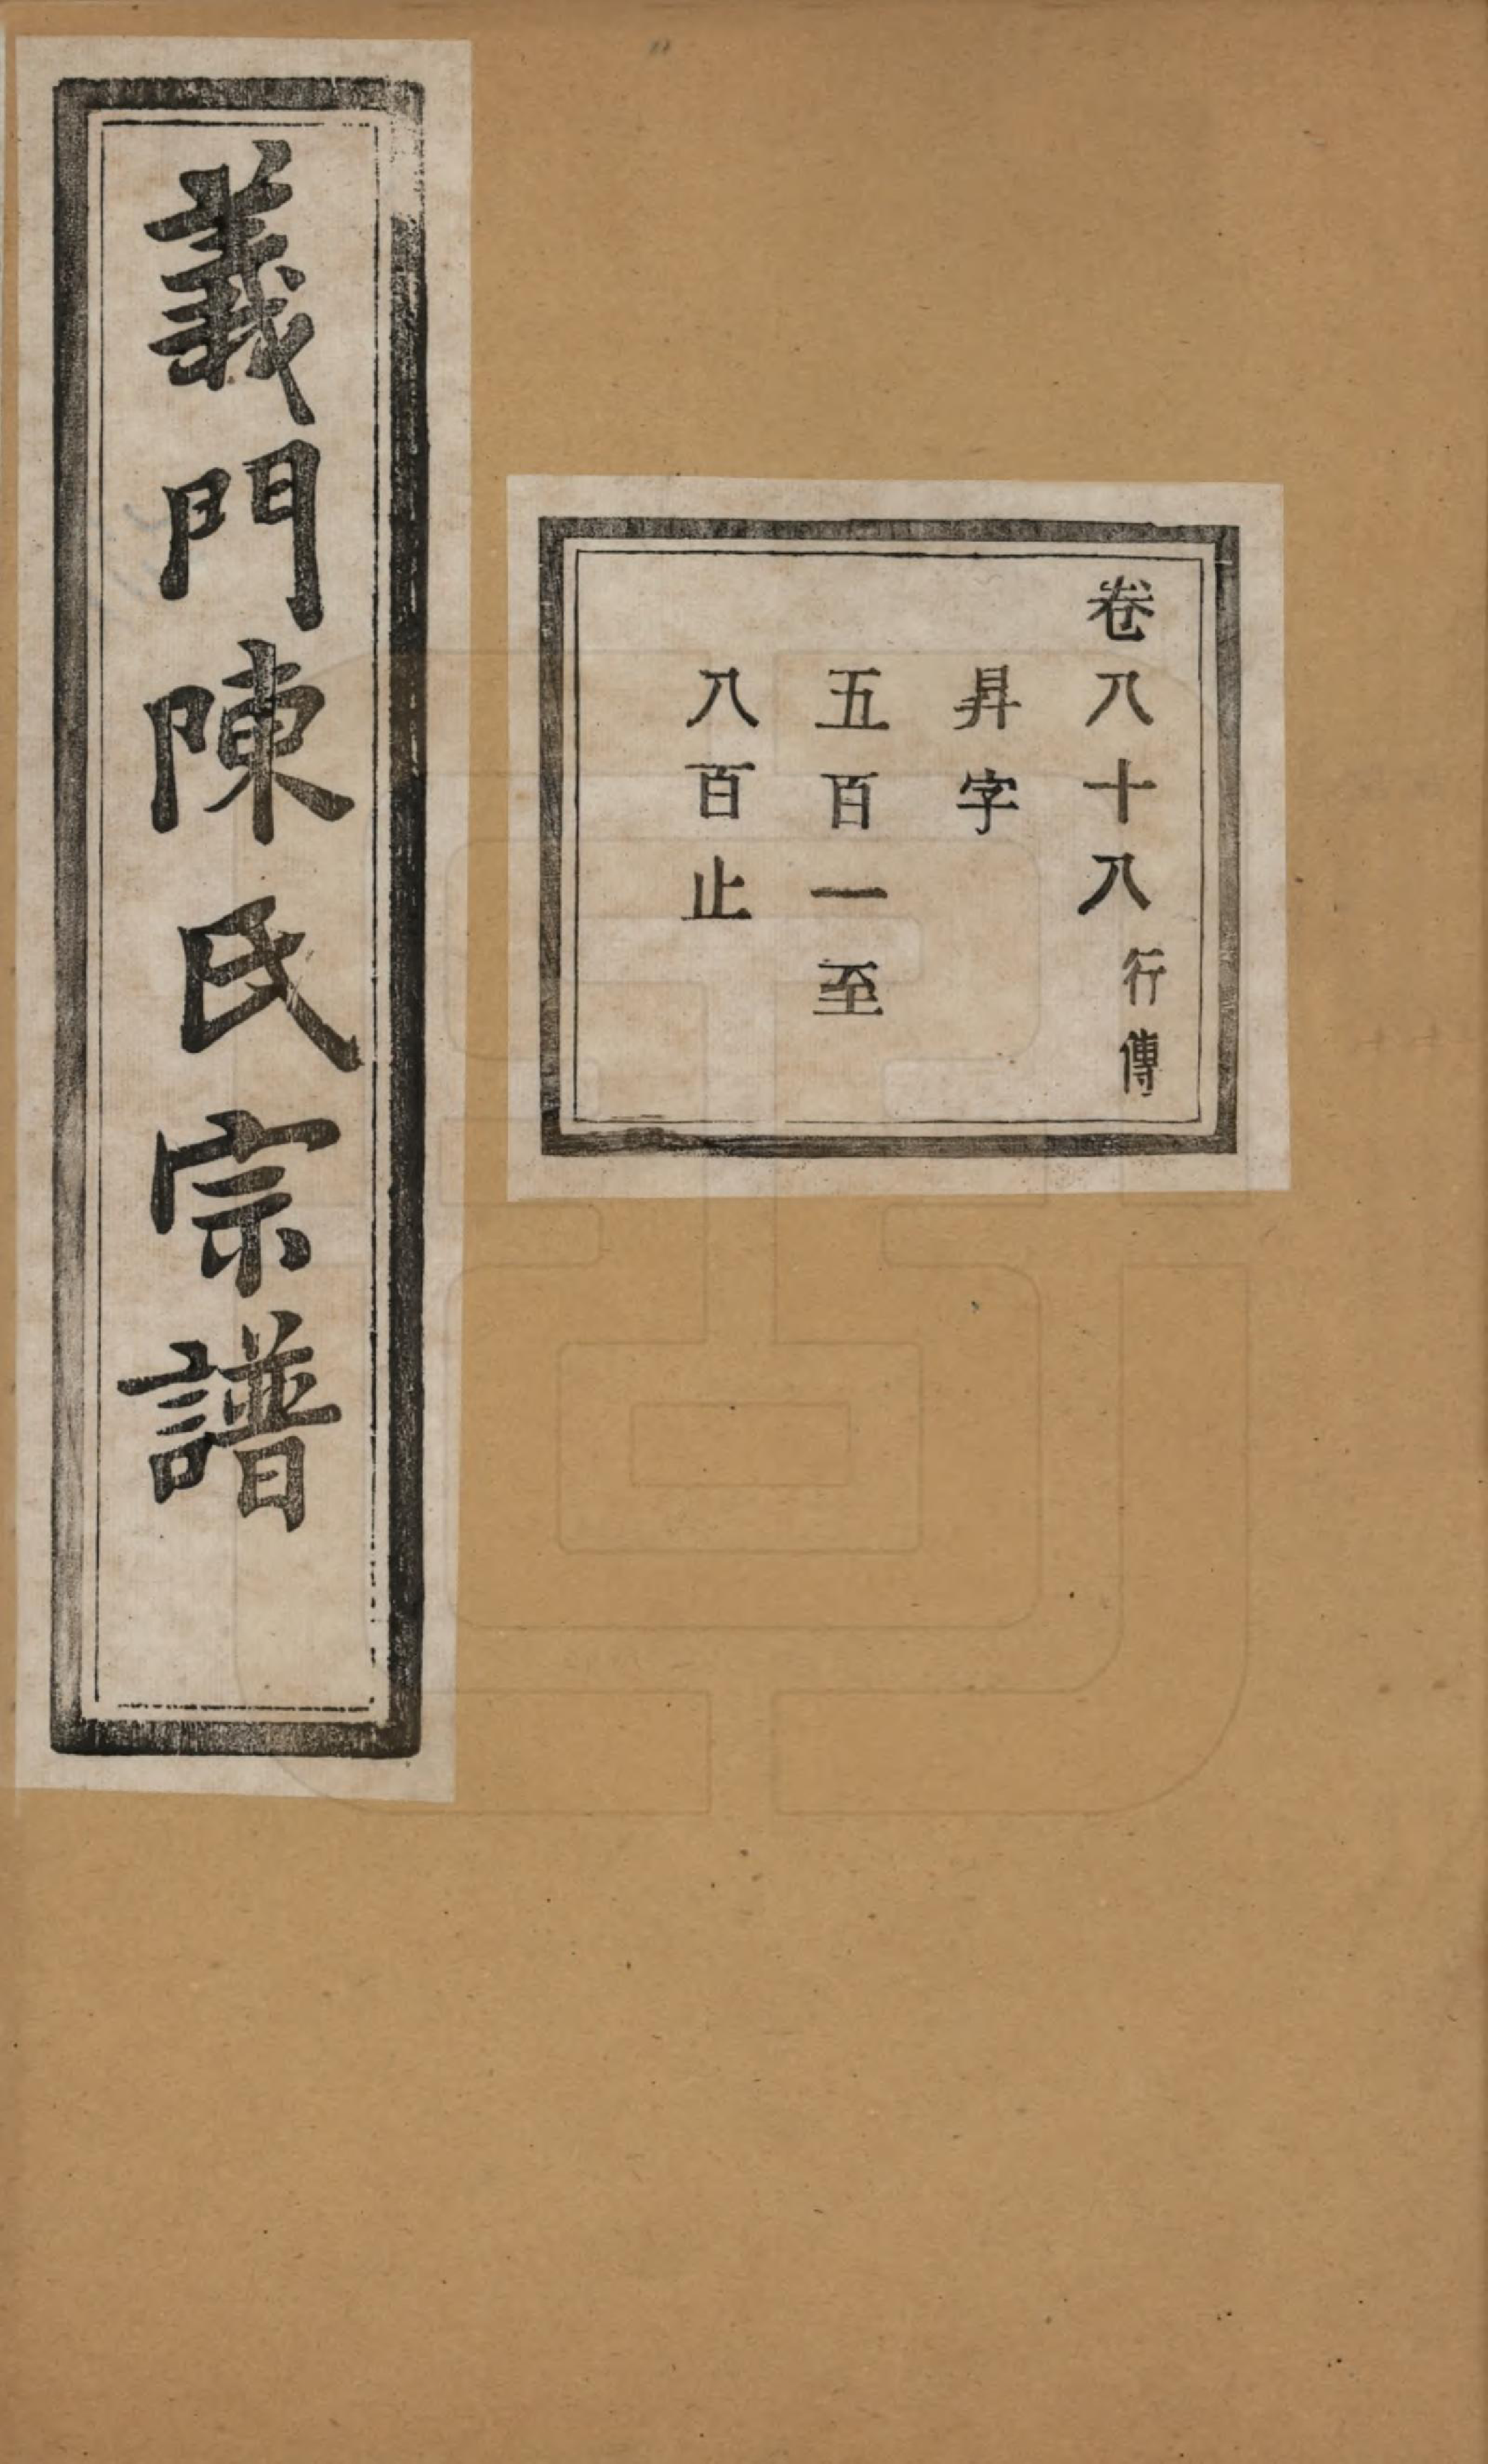 卷八十八行傳
昇字
五百一至
八百止
義門陳氏宗譜